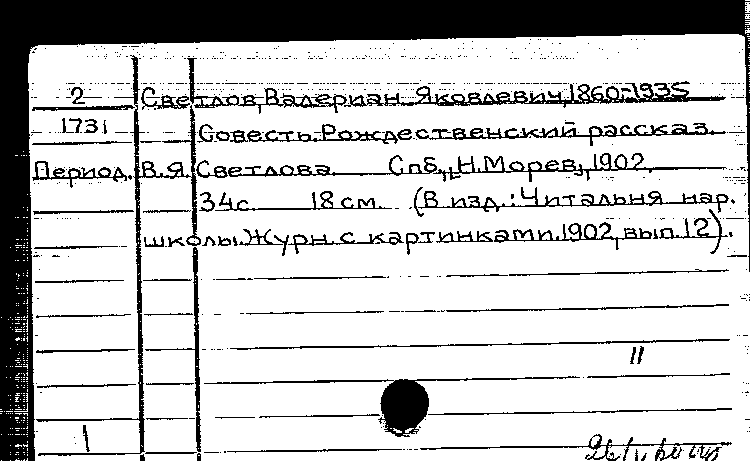 2 Светлов, Валериан Яковлевич, 1860-1935
1731 Совесть. Рождественский рассказ.
Период. В.Я. Светлова. Спб., Н. Морев, 1902.
34 с. 18 см. (В изд.: Читальня нар.
школы. Журн. с картинками. 1902, вып. 12).
11
1